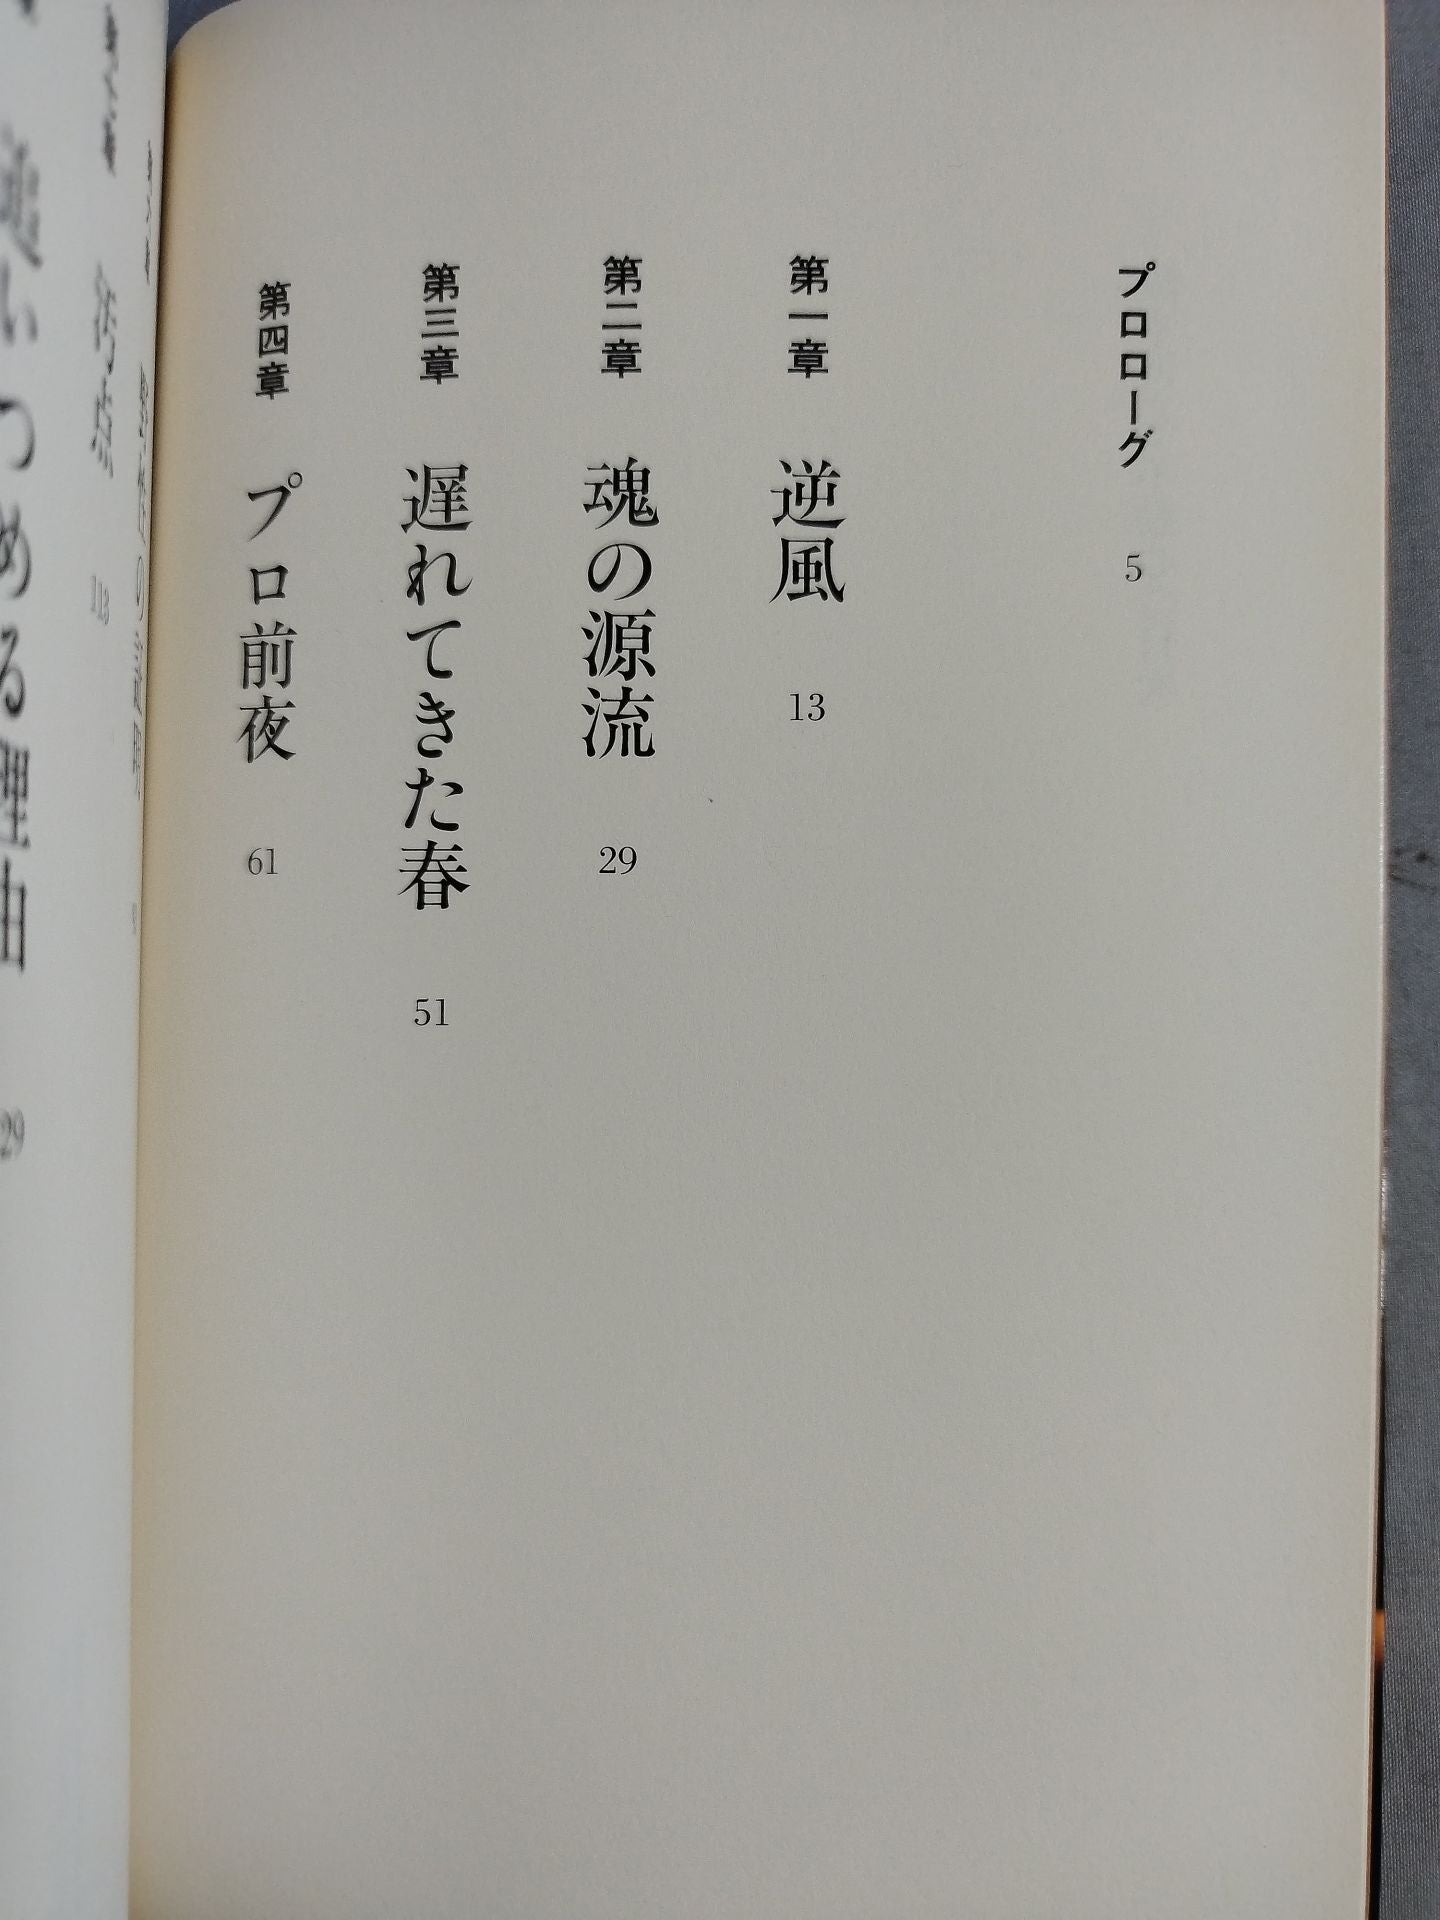 プロローグ 5
第一章 逆風 13
第二章 魂の源流 29
第三章 遅れてきた春 51
第四章 プロ前夜 61
113
追いつめる理由 29